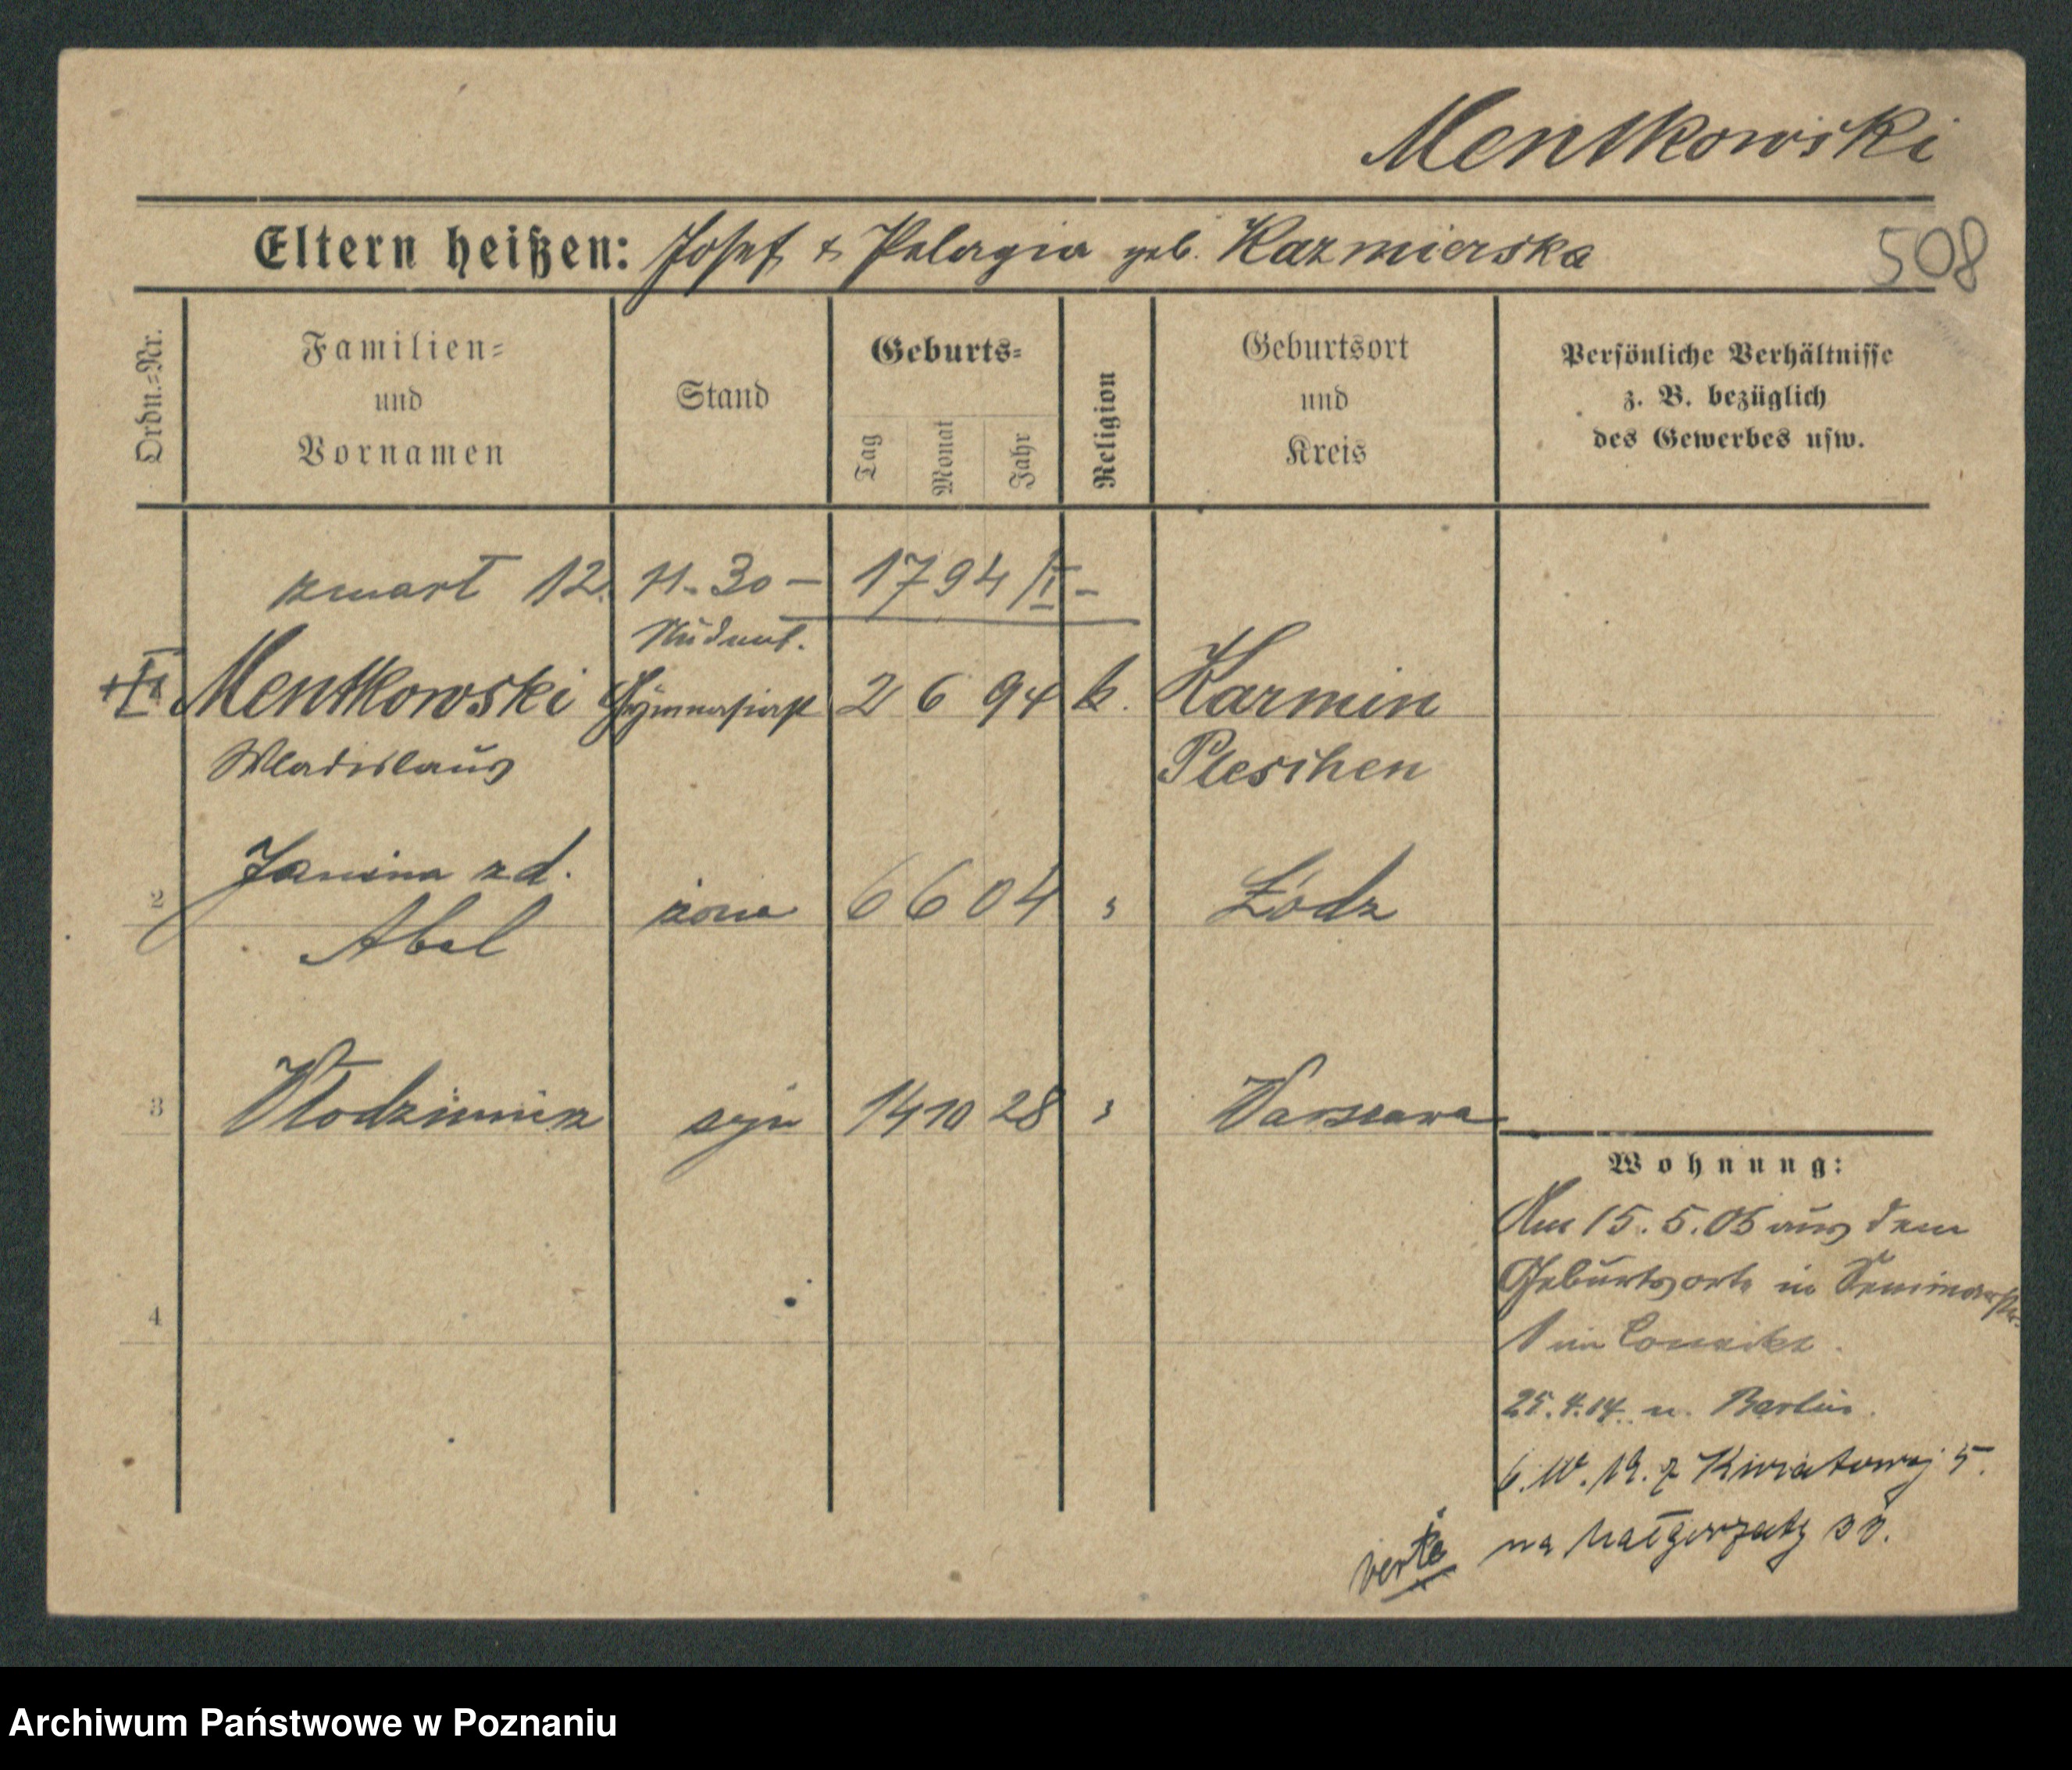 Mentkowski
508
Eltern heißen: Josef & Pelagia geb. Kazmierska
Ordn.-Nr.
Familien-
und
Vornamen
Stand
Geburts-
Tag
Monat
Jahr
Religion
Geburtsort
und
Kreis
Persönliche Verhältnisse
z. B. bezüglich
des Gewerbes usw.
zmarł 12. 11. 30 – 1794/II –
Student.
Mentkowski Gymnasiast 2 6 94 k. Karmin
Wladislaus Pleschen
Janina zd.
2 Abel żona 6 6 04 " Łódz
3 Włodzimierz syn 14 10 28 " Warszawa
4
Wohnung:
Am 15. 5. 06 aus dem
Geburtsorte in Seminarstr.
1 im Convikt.
25. 4. 14. n. Berlin.
6. 10. 19. z Kwiatowej 5.
verte na Małgorzaty
Archiwum Państwowe w Poznaniu